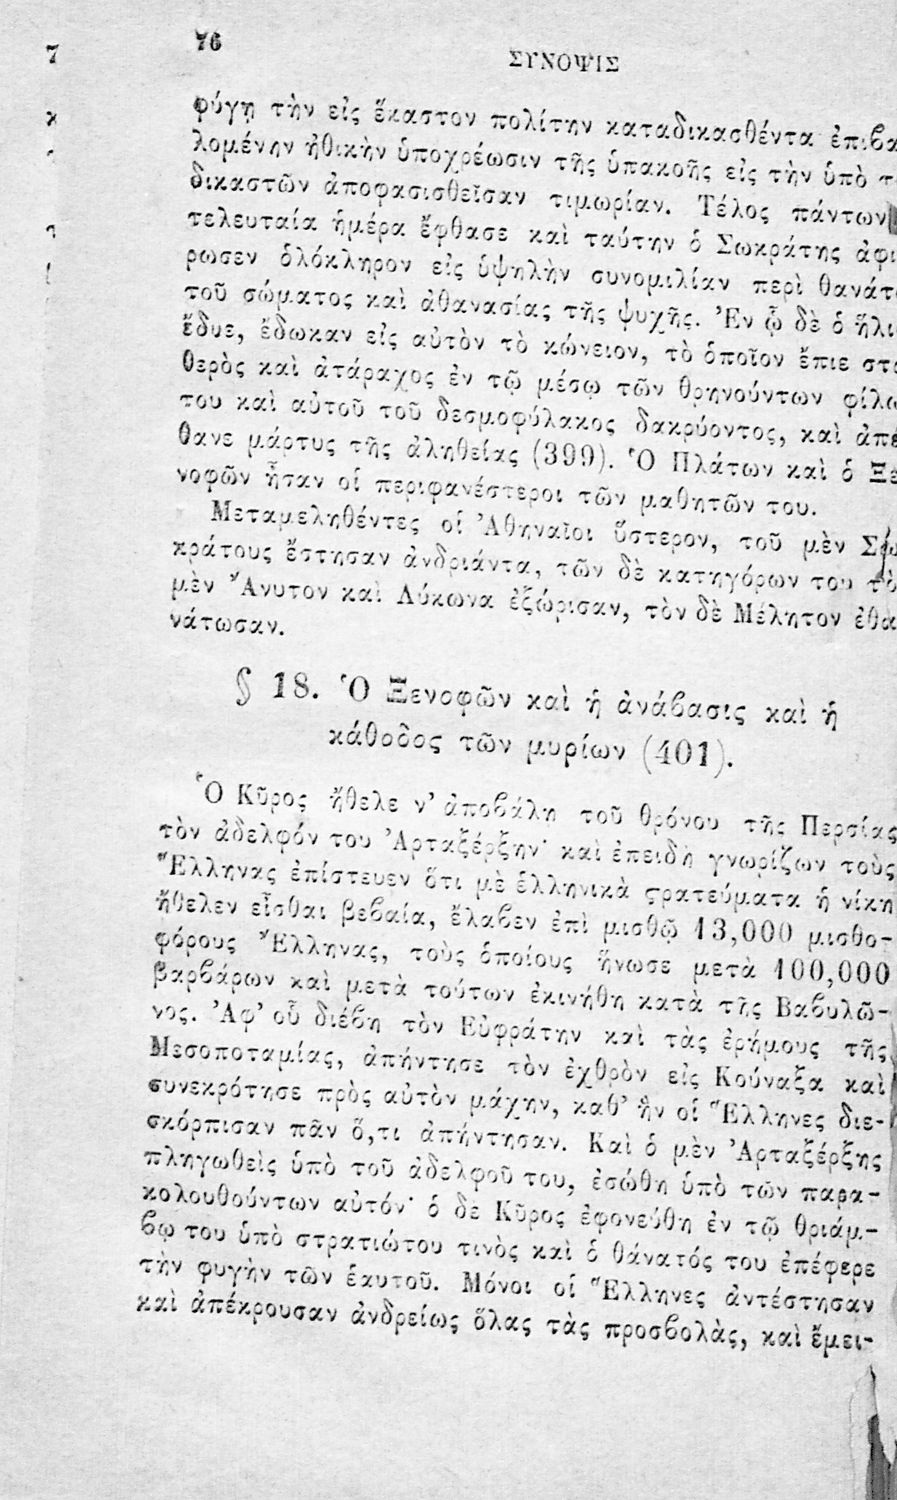 76
ΣΥΝΟΨΙΣ
φύγῃ τὴν εἰς ἕκαστον πολίτην καταδικασθέντα ἐπιβα
λομένην ἠθικὴν ὑποχρέωσιν τῆς ὑπακοῆς εἰς τὴν ὑπὸ τ
δικαστῶν ἀποφασισθεῖσαν τιμωρίαν. Τέλος πάντων
τελευταία ἡμέρα ἔφθασε καὶ ταύτην ὁ Σωκράτης ἀφι
ρωσεν ὁλόκληρον εἰς ὑψηλὴν συνομιλίαν περὶ θανάτ
τοῦ σώματος καὶ ἀθανασίας τῆς ψυχῆς. Ἐν ᾧ δὲ ὁ ἥλι
ἔδυε, ἔδωκαν εἰς αὐτὸν τὸ κώνειον, τὸ ὁποῖον ἔπιε στα
θερὸς καὶ ἀτάραχος ἐν τῷ μέσῳ τῶν θρηνούντων φίλω
του καὶ αὐτοῦ τοῦ δεσμοφύλακος δακρύοντος, καὶ ἀπέ
θανε μάρτυς τῆς ἀληθείας (399). Ὁ Πλάτων καὶ ὁ Ξε
νοφῶν ἦσαν οἱ περιφανέστεροι τῶν μαθητῶν του.
Μεταμεληθέντες οἱ Ἀθηναῖοι ὕστερον, τοῦ μὲν Σω
κράτους ἔστησαν ἀνδριάντα, τῶν δὲ κατηγόρων του τὸ
μὲν Ἄνυτον καὶ Λύκωνα ἐξώρισαν, τὸν δὲ Μέλητον ἐθα
νάτωσαν.
§ 18. Ὁ Ξενοφῶν καὶ ἡ ἀνάβασις καὶ ἡ
κάθοδος τῶν μυρίων (401).
Ὁ Κῦρος ἤθελε ν' ἀποβάλη τοῦ θρόνου τῆς Περσίας
τὸν ἀδελφόν του Ἀρταξέρξην· καὶ ἐπειδὴ γνωρίζων τοὺς
Ἕλληνας ἐπίστευεν ὅτι μὲ ἑλληνικὰ στρατεύματα ἡ νίκη
ἤθελεν εἶσθαι βεβαία, ἔλαβεν ἐπὶ μισθῷ 13,000 μισθο-
φόρους Ἕλληνας, τοὺς ὁποίους ἥνωσε μετὰ 100,000
βαρβάρων καὶ μετὰ τούτων ἐκινήθη κατὰ τῆς Βαβυλῶ-
νος. Ἀφ' οὗ διέβη τὸν Εὐφράτην καὶ τὰς ἐρήμους τῆς
Μεσοποταμίας, ἀπήντησε τὸν ἐχθρὸν εἰς Κούναξα καὶ
συνεκρότησε πρὸς αὐτὸν μάχην, καθ' ἣν οἱ Ἕλληνες διε-
σκόρπισαν πᾶν ὅ,τι ἀπήντησαν. Καὶ ὁ μὲν Ἀρταξέρξης
πληγωθεὶς ὑπὸ τοῦ ἀδελφοῦ του, ἐσώθη ὑπὸ τῶν παρα-
κολουθούντων αὐτόν· ὁ δὲ Κῦρος ἐφονεύθη ἐν τῷ θριάμ-
βῳ του ὑπὸ στρατιώτου τινὸς καὶ ὁ θάνατός του ἐπέφερε
τὴν φυγὴν τῶν ἑαυτοῦ. Μόνοι οἱ Ἕλληνες ἀντέστησαν
καὶ ἀπέκρουσαν ἀνδρείως ὅλας τὰς προσβολὰς, καὶ ἔμει-